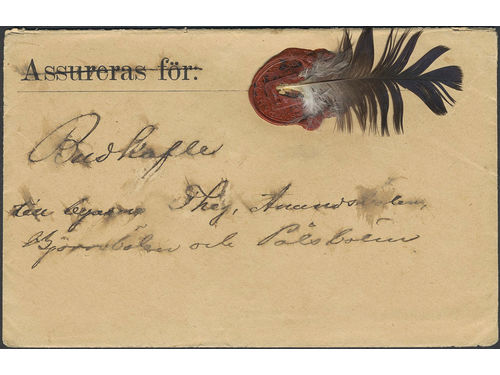 Assureras för:
Budkafle
till byarne Thy, Amund
Björnbölen och Pålsbölen